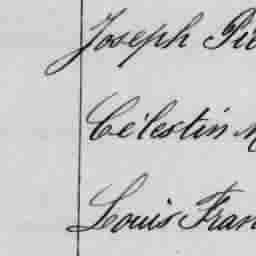 Joseph Pi
Célestin
Louis Fran